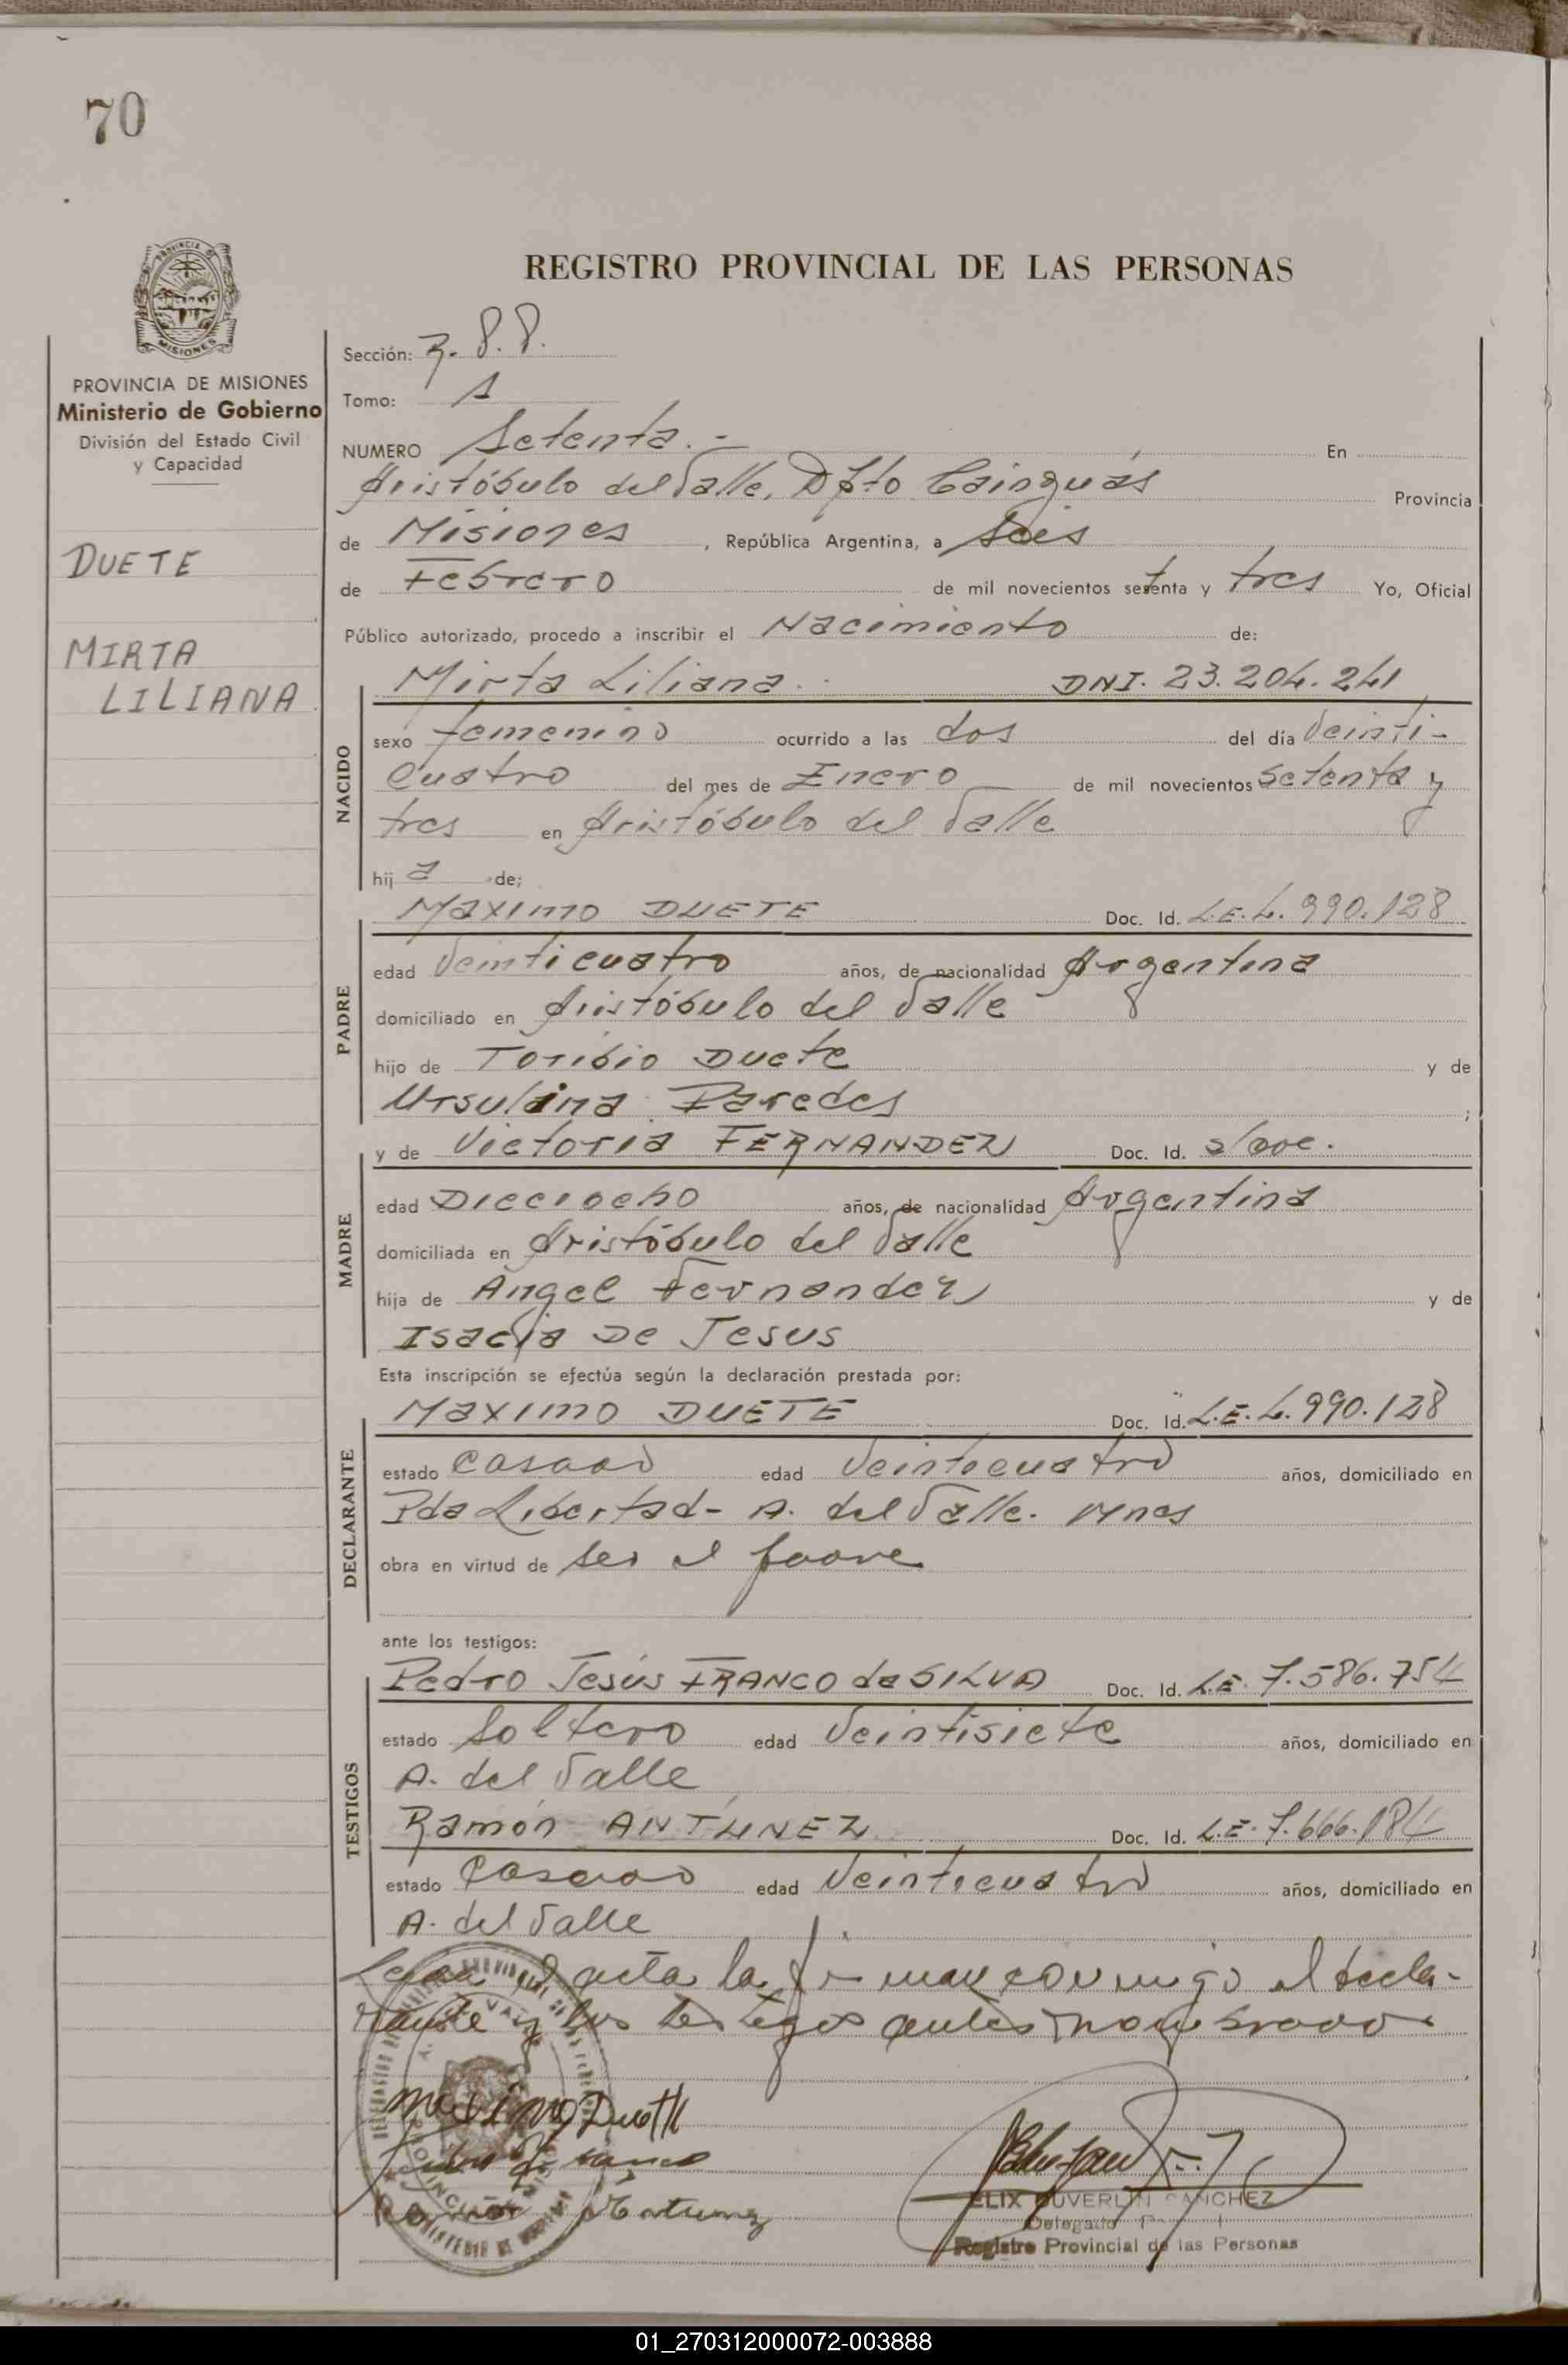 70
PROVINCIA
MISIONES
PROVINCIA DE MISIONES
Ministerio de Gobierno
División del Estado Civil
y Capacidad
DUETE
MIRTA
LILIANA
REGISTRO PROVINCIAL DE LAS PERSONAS
Sección: R. 8. 8.
Tomo: 1
NUMERO Setenta.- En
Aristóbulo del Valle, Dpto Cainguás Provincia
de Misiones , República Argentina, a Seis
de Febrero de mil novecientos setenta y tres Yo, Oficial
Público autorizado, procedo a inscribir el Nacimiento de:
Mirta Liliana. DNI. 23.204.241
NACIDO
sexo femenino ocurrido a las dos del día Veinti-
cuatro del mes de Enero de mil novecientos setenta y
tres en Aristóbulo del Valle
hij a de;
PADRE
Maximo DUETE Doc. Id. L.E. 4.990.128
edad Veinticuatro años, de nacionalidad Argentina
domiciliado en Aristóbulo del Valle
hijo de Toribio Duete y de
Ursulina Paredes ;
MADRE
y de Victoria FERNANDEZ Doc. Id. s/doc.
edad Dieciocho años, de nacionalidad Argentina
domiciliada en Aristóbulo del Valle
hija de Angel Fernandez y de
De Jesus
Esta inscripción se efectúa según la declaración prestada por:
DECLARANTE
Maximo DUETE Doc. Id. L.E. 4.990.128
estado casado edad Veinticuatro años, domiciliado en
Pda Libertad- A. del Valle. Mnes
obra en virtud de ser el padre
ante los testigos:
TESTIGOS
Pedro Jesús FRANCO da SILVA Doc. Id. L.E. 7.586.754
estado Soltero edad Veintisiete años, domiciliado en
A. del Valle
Ramón ANTUNEZ Doc. Id. L.E. 7.666.184
estado Casado edad Veinticuatro años, domiciliado en
A. del Valle
Leída el acta la firman conmigo el decla-
rante y los testigos antes nombrado.
Maximo Duette
Ramón Antunez
FELIX DUVERLIN SANCHEZ
Delegado
Registro Provincial de las Personas
01_270312000072-003888